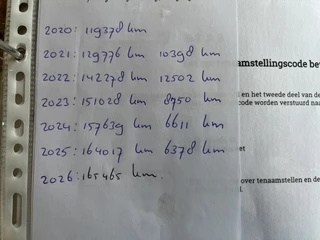 2020: 119378 km
2021: 129776 km 10398 km
2022: 142278 km 12502 km
2023: 151028 km 8750 km
2024: 157639 km 6611 km
2025: 164017 km 6378 km
2026: 165465 km.
amstellingscode be
en het tweede deel van de
code worden verstuurd na
et
over tenaamstellen en de